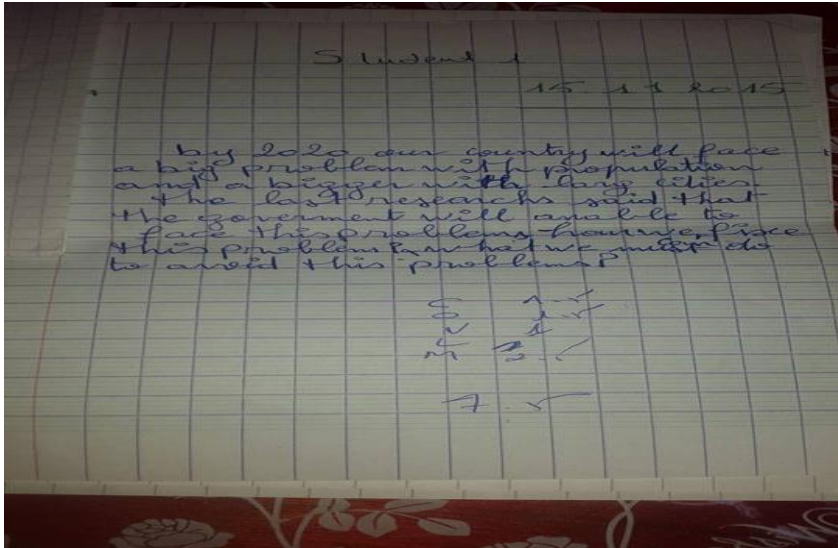 Student 1
15.11 2015
by 2020 our country will face
a big problem with population
and a bigger with larg cities.
The last researchs said that
the goverment will anable to
face this problems. how we face
this problems & what we must do
to avoid this problems?
S 1.5
1.5
V 1
M 2.5
7.5